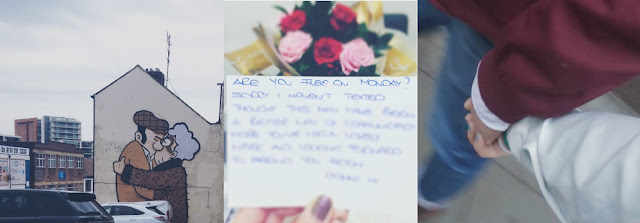 ARE YOU FREE ON MONDAY?
SORRY I HAVEN'T TEXTED
THOUGHT THIS MAY HAVE BEEN
A BETTER WAY OF COMMUNICATION
HOPE YOU'VE HAD A LOVELY
WEEK AND LOOKING FORWARD
TO SEEING YOU SOON
XX